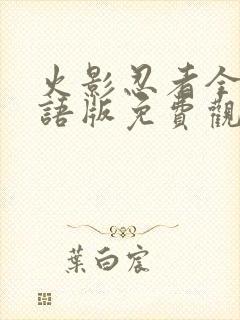 火影忍者全
語版免費觀
葉白宸